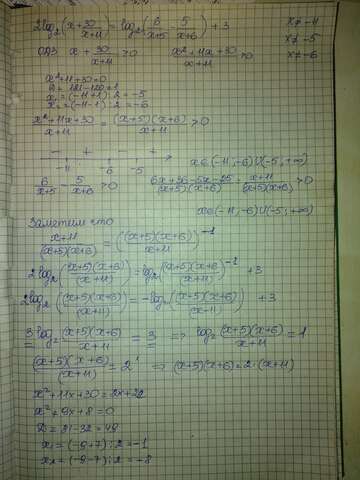 2log₂(x + 30/(x+11)) = log₂(6/(x+5) - 5/(x+6)) + 3   x ≠ -11
x ≠ -5
ОДЗ x + 30/(x+11) > 0   (x²+11x+30)/(x+11) > 0   x ≠ -6
x²+11+30=0
D = 121-120=1
x₁ = (-11+1):2 = -5
x₂ = (-11-1):2 = -6
(x²+11x+30)/(x+11) = ((x+5)(x+6))/(x+11) > 0
- + - +
-11 -6 -5   x∈(-11;-6)∪(-5;+∞)
6/(x+5) - 5/(x+6) > 0   (6x+36-5x-25)/((x+5)(x+6)) = (x+11)/((x+5)(x+6)) > 0
x∈(-11;-6)∪(-5;+∞)
Заметим что
(x+11)/((x+5)(x+6)) = (((x+5)(x+6))/(x+11))⁻¹
2log₂(((x+5)(x+6))/(x+11)) = log₂(((x+5)(x+6))/(x+11))⁻¹ + 3
2log₂(((x+5)(x+6))/(x+11)) = -log₂(((x+5)(x+6))/(x+11)) + 3
3log₂((x+5)(x+6))/(x+11) = 3 ⇒ log₂((x+5)(x+6))/(x+11) = 1
((x+5)(x+6))/(x+11) = 2¹ ⇒ (x+5)(x+6) = 2·(x+11)
x²+11x+30 = 2x+22
x²+9x+8=0
D = 81-32=49
x₁ = (-9+7):2 = -1
x₂ = (-9-7):2 = -8